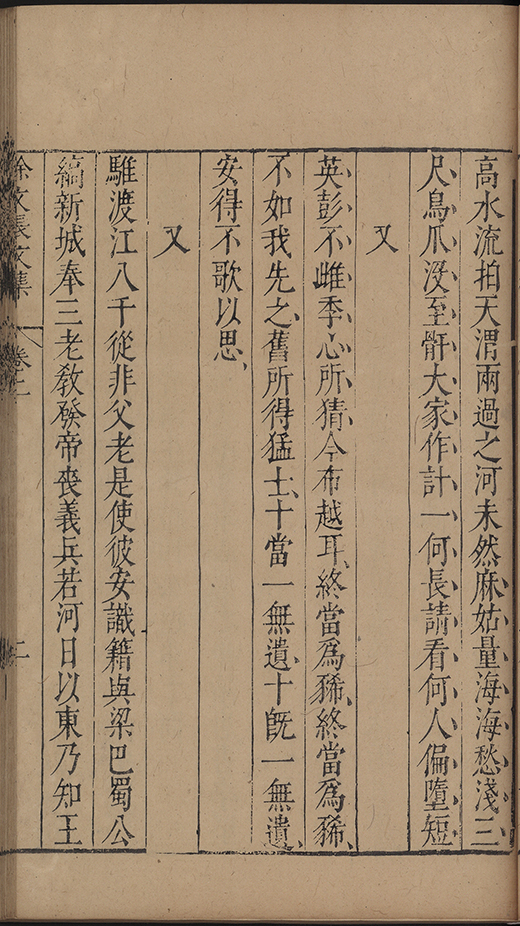 高水流拍天渭兩過之河未然麻姑量海海愁淺三
尺鳥爪沒至骭大家作計一何長請看何人偏墮短
又
英彭不雌季心所猜今布越耳終當為豨終當為豨
不如我先之舊所得猛士十當一無遺十旣一無遺
安得不歌以思
又
騅渡江八千從非父老是使彼安識籍與梁巴蜀公
縞新城奉三老敎發帝喪義兵若河日以東乃知王
徐文長文集 卷二 二